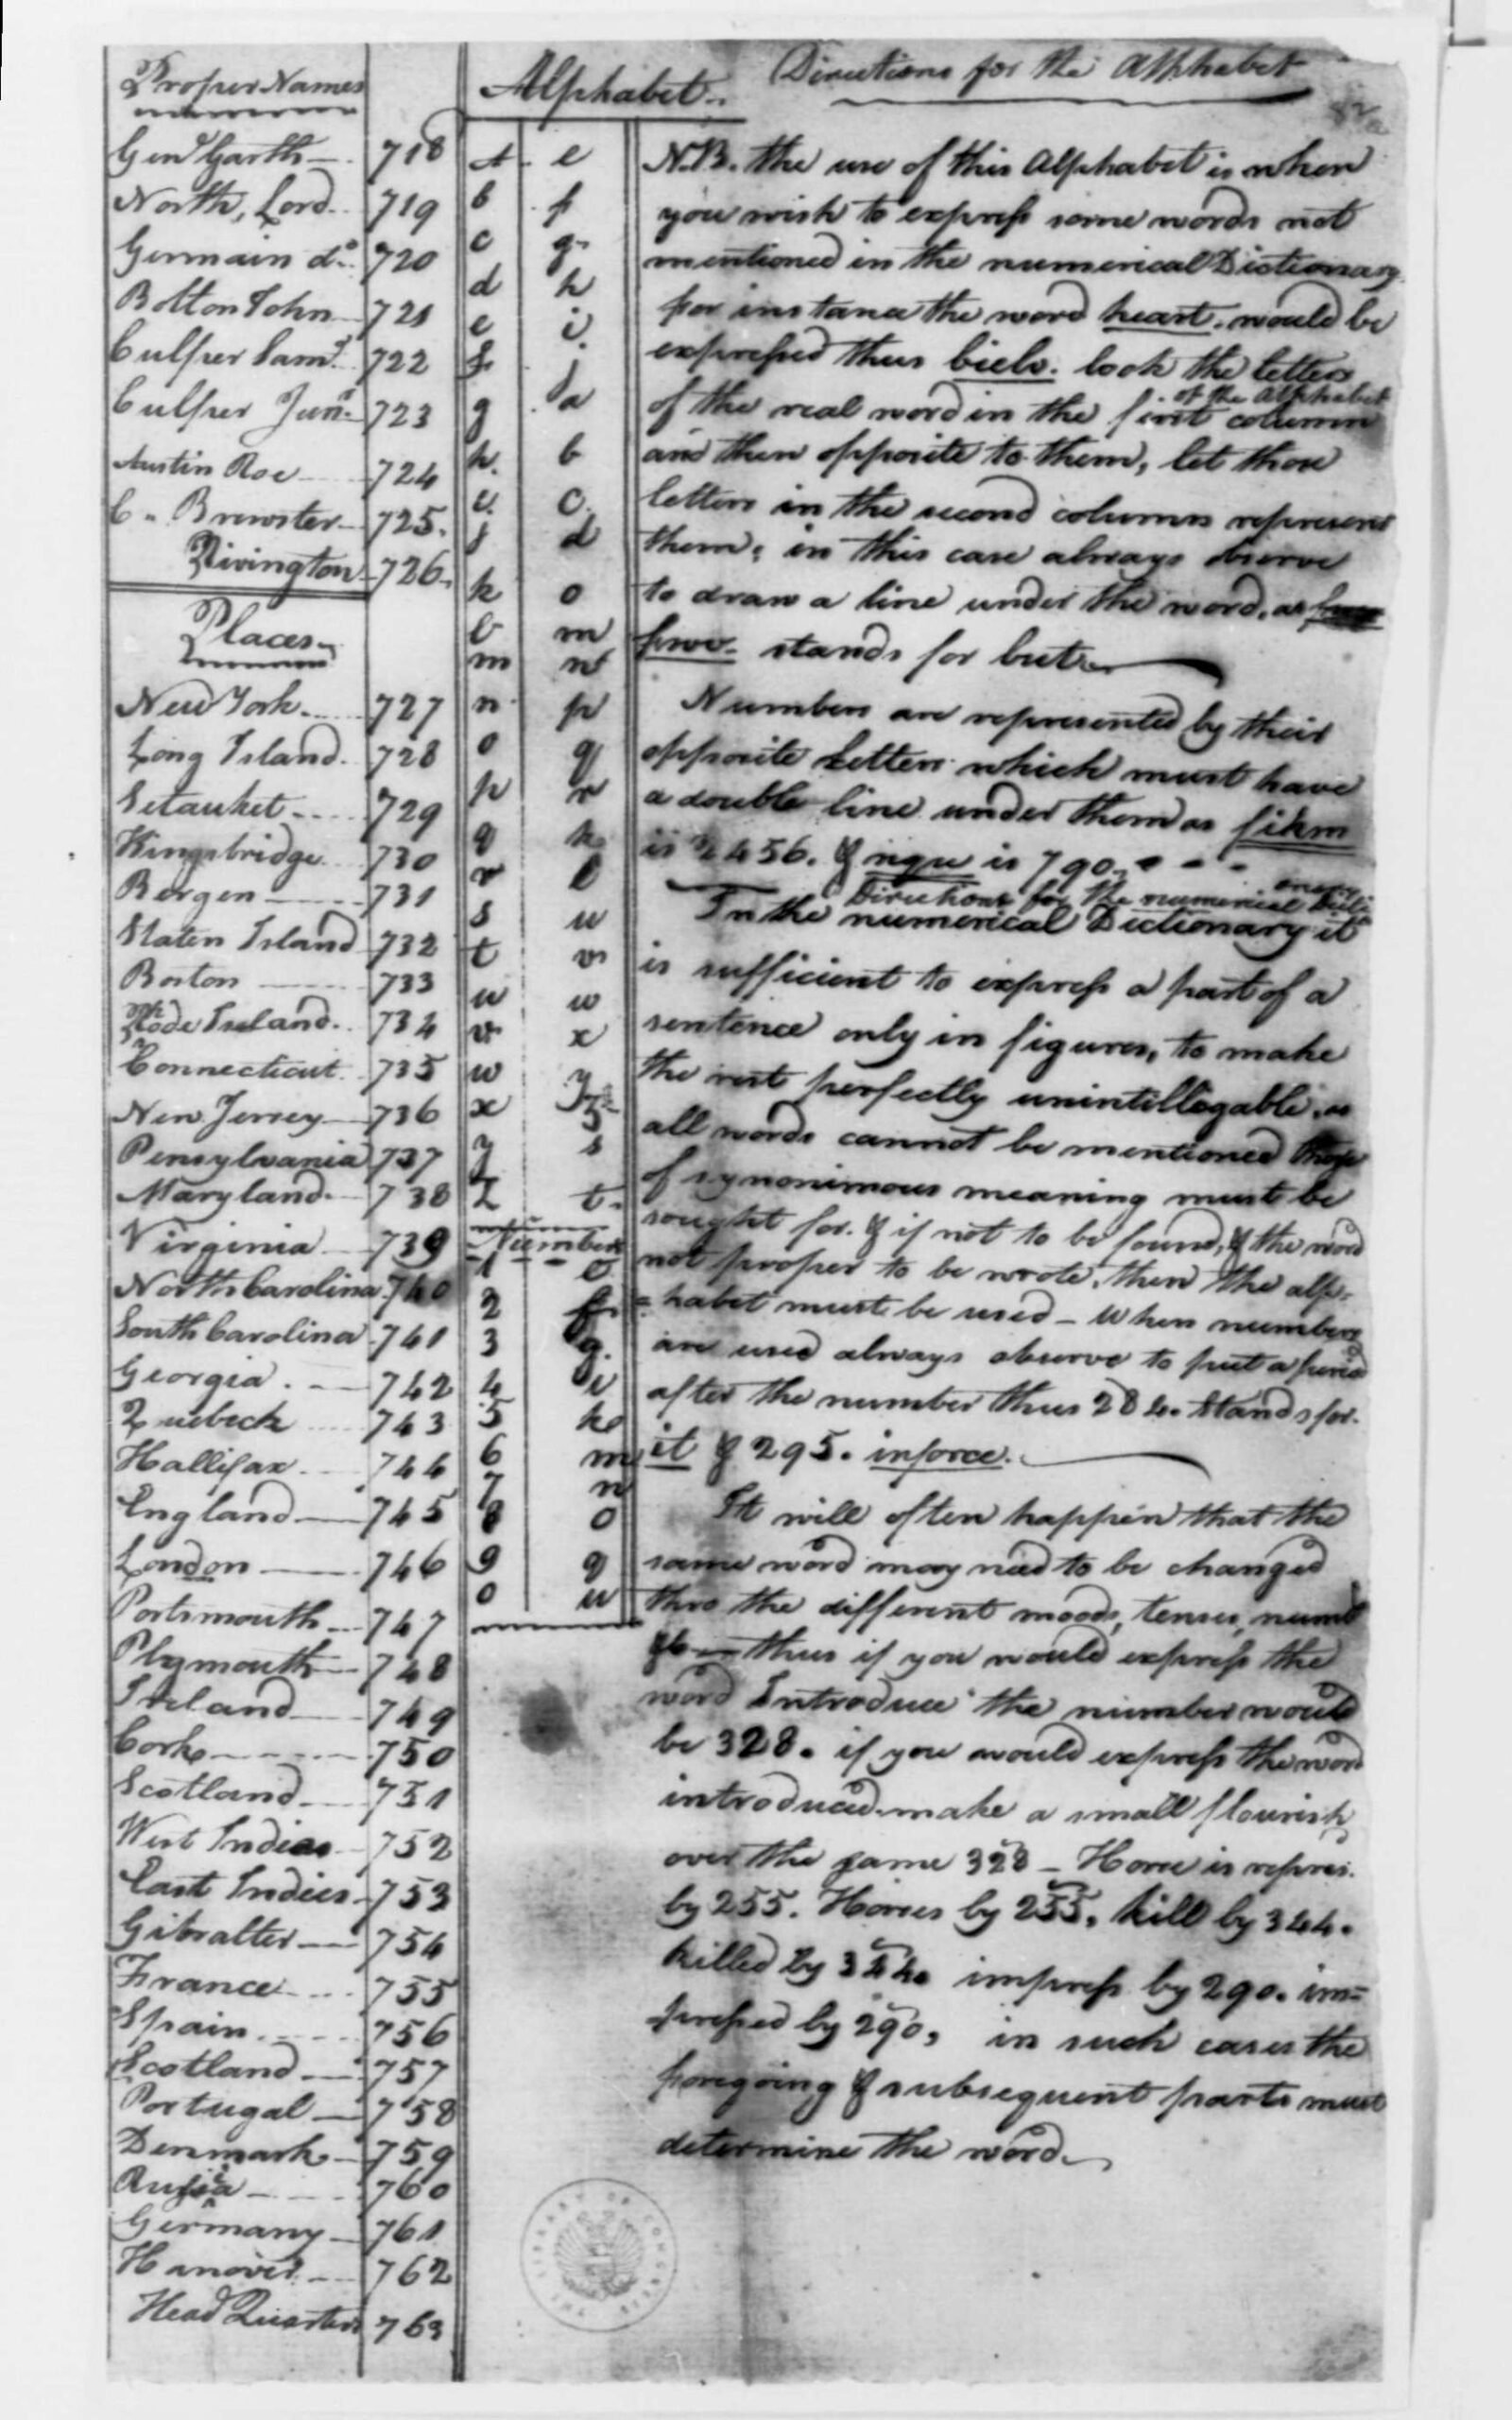 Proper Names
Genl Garth 718
North, Lord 719
Germain do 720
Bolton John 721
Culper Saml. 722
Culper Junr. 723
Austin Roe 724
C. Brewster 725.
Rivington 726.
Places
New York 727
Long Island 728
Setauket 729
Kingsbridge 730
Bergen 731
Staten Island 732
Boston 733
Rhode Island 734
Connecticut 735
New Jersey 736
Pensylvania 737
Maryland 738
Virginia 739
North Carolina 740
South Carolina 741
Georgia 742
Quebeck 743
Hallifax 744
England 745
London 746
Portsmouth 747
Plymouth 748
Ireland 749
Cork 750
Scotland 751
West Indies 752
East Indies 753
Gibralter 754
France 755
Spain 756
Scotland 757
Portugal 758
Denmark 759
Russia 760
Germany 761
Hanover 762
Head Quarters 763
Alphabet
A e
b f
c g
d h
e i
f j
g a
h b
i c
j d
k o
l m
m n
n p
o q
p r
q k
r l
s u
t v
u w
v x
w y
x z
y s
Z t
Numbers
1 e
2 f
3 g
4 i
5 k
6 m
7 n
8 o
9 q
0 u
Directions for the Alphabet
N.B. the use of this Alphabet is when
you wish to express some words not
mentioned in the numerical Dictionary
for instance the word heart. would be
expressed thus bielv. look the letters
of the real word in the first column of the Alphabet
and then opposite to them, let those
letters in the second column represent
them; in this case always observe
to draw a line under the word, as
fwv. stands for but
Numbers are represented by their
opposite letters which must have
a double line under them as fikm
is 2456. & nqu is 790.
Directions for the numerical
In the numerical Dictionary it
is sufficient to express a part of a
sentence only in figures, to make
the rest perfectly unintillegable, as
all words cannot be mentioned those
of synonimous meaning must be
sought for. & if not to be found, & the word
not proper to be wrote, then the alp=
=habet must be used – When numbers
are used always observe to put a period
after the number thus 284. stands for
it & 295. inforce.
It will often happen that the
same word may need to be changed
thro the different moods, tenses, numb
thus if you would express the
word Introduce the number would
be 328. if you would express the word
introduced make a small flourish
over the same 328 – Horse is repres.
by 255. Horses by 255. kill by 344.
killed by 344. impress by 290. im=
pressed by 290, in such cases the
foregoing & subsequent parts must
determine the word.
THE LIBRARY OF CONGRESS